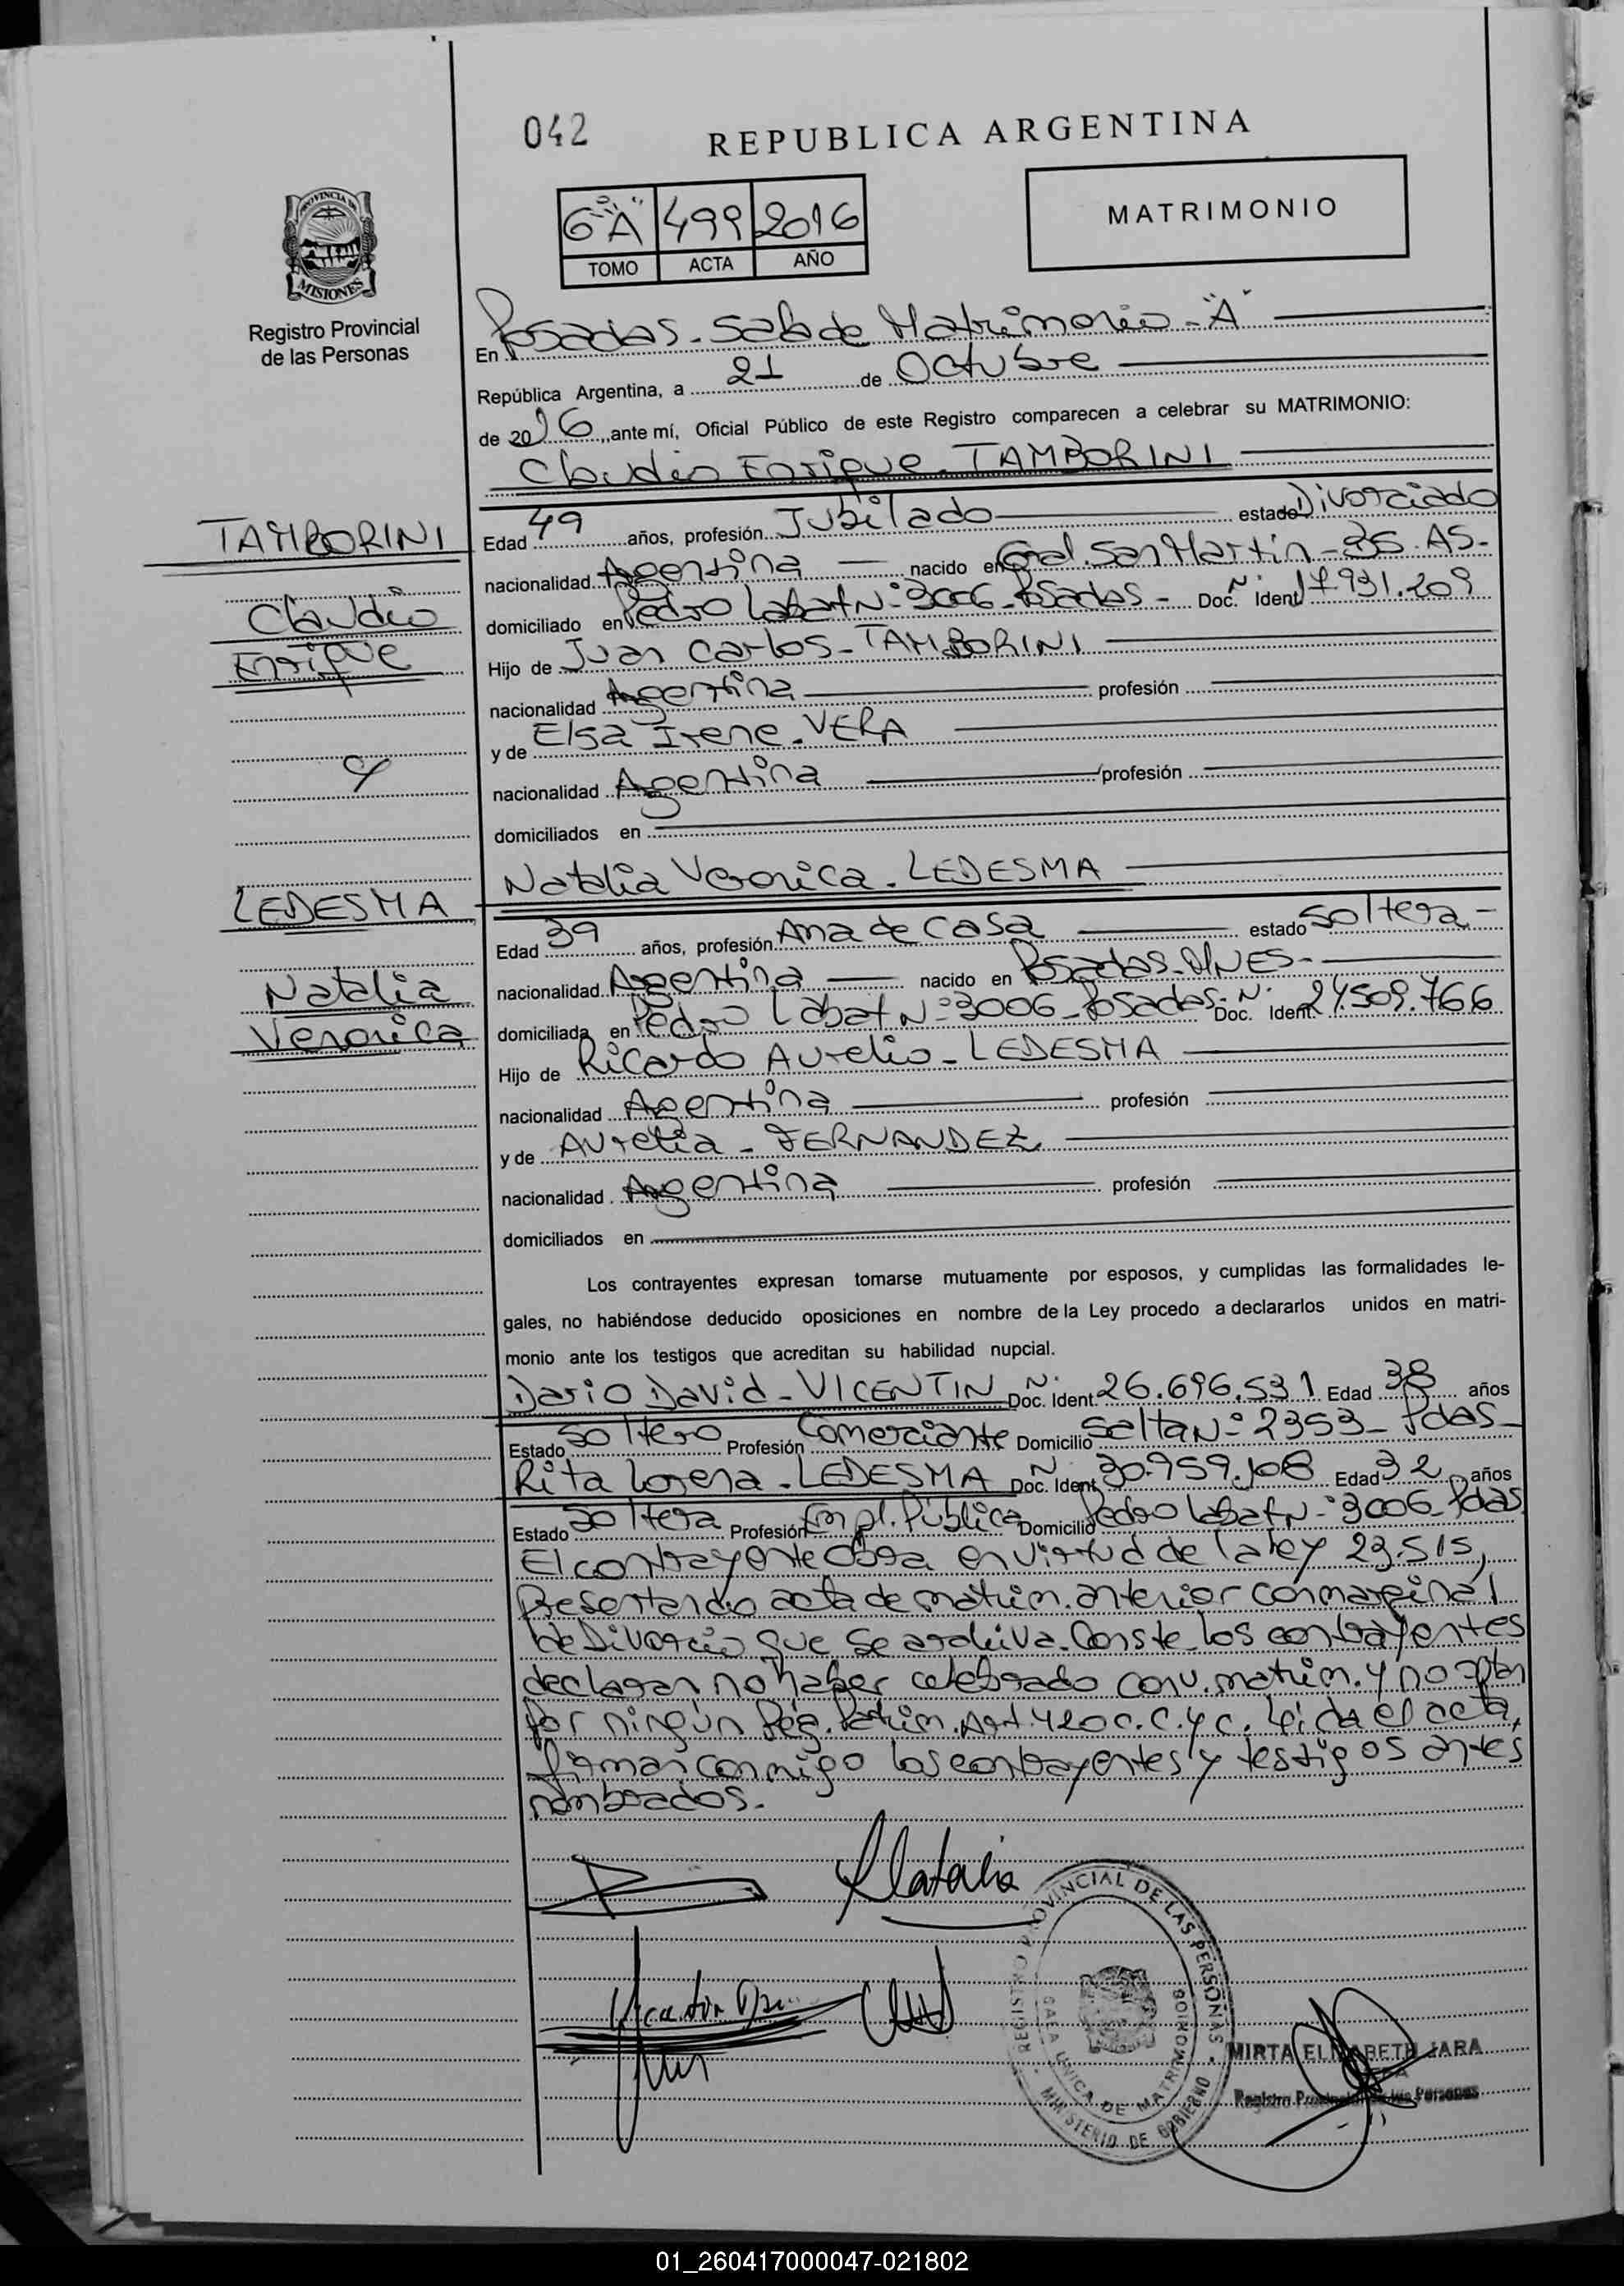 042
REPUBLICA ARGENTINA
6º "A" 499 2016
TOMO ACTA AÑO
MATRIMONIO
PROVINCIA DE
MISIONES
Registro Provincial
de las Personas
En Posadas - Sala de Matrimonio - "A"
República Argentina, a 21 de Octubre
de 2016, ante mí, Oficial Público de este Registro comparecen a celebrar su MATRIMONIO:
Claudio Enrique - TAMBORINI
TAMBORINI
Claudio
Enrique
Edad 49 años, profesión Jubilado estado Divorciado
nacionalidad Argentina nacido en Gral. San Martín - BS. AS-
domiciliado en Pedro Labat Nº 3006 - Posadas - Doc. Ident. Nº 17.931.209
Hijo de Juan Carlos - TAMBORINI
nacionalidad Argentina profesión
y de Elsa Irene - VERA
y
nacionalidad Argentina profesión
domiciliados en
Natalia Veronica - LEDESMA
LEDESMA
Natalia
Veronica
Edad 39 años, profesión Ama de Casa estado Soltera -
nacionalidad Argentina nacido en Posadas - MNES -
domiciliada en Pedro Labat Nº 3006 - Posadas - Doc. Ident. Nº 24.509.766
Hijo de Ricardo Aurelio - LEDESMA
nacionalidad Argentina profesión
y de Aurelia - FERNANDEZ
nacionalidad Argentina profesión
domiciliados en
Los contrayentes expresan tomarse mutuamente por esposos, y cumplidas las formalidades le-
gales, no habiéndose deducido oposiciones en nombre de la Ley procedo a declararlos unidos en matri-
monio ante los testigos que acreditan su habilidad nupcial.
Dario David - VICENTIN Doc. Ident. Nº 26.696.531 Edad 38 años
Estado Soltero Profesión Comerciante Domicilio Salta Nº 2353 - Pdas -
Rita Lorena - LEDESMA Doc. Ident. Nº 30.959.108 Edad 32 años
Estado Soltera Profesión Empl. Pública Domicilio Pedro Labat Nº 3006 - Pdas
El contrayente obra en virtud de la ley 23.515,
Presentando acta de matrim. anterior con marginal
de Divorcio que se archiva. Conste los contrayentes
declaran no haber celebrado conv. matrim. y no optan
por ningún Rég. Patrim. Art. 420 C.C.y C. Leída el acta,
firman conmigo los contrayentes y testigos antes
nombrados.-
Natalia
REGISTRO PROVINCIAL DE LAS PERSONAS
MINISTERIO DE GOBIERNO
UNICA DE MATRIMONIOS
MIRTA ELIZABETH JARA
Registro Provincial de las Personas
01_260417000047-021802